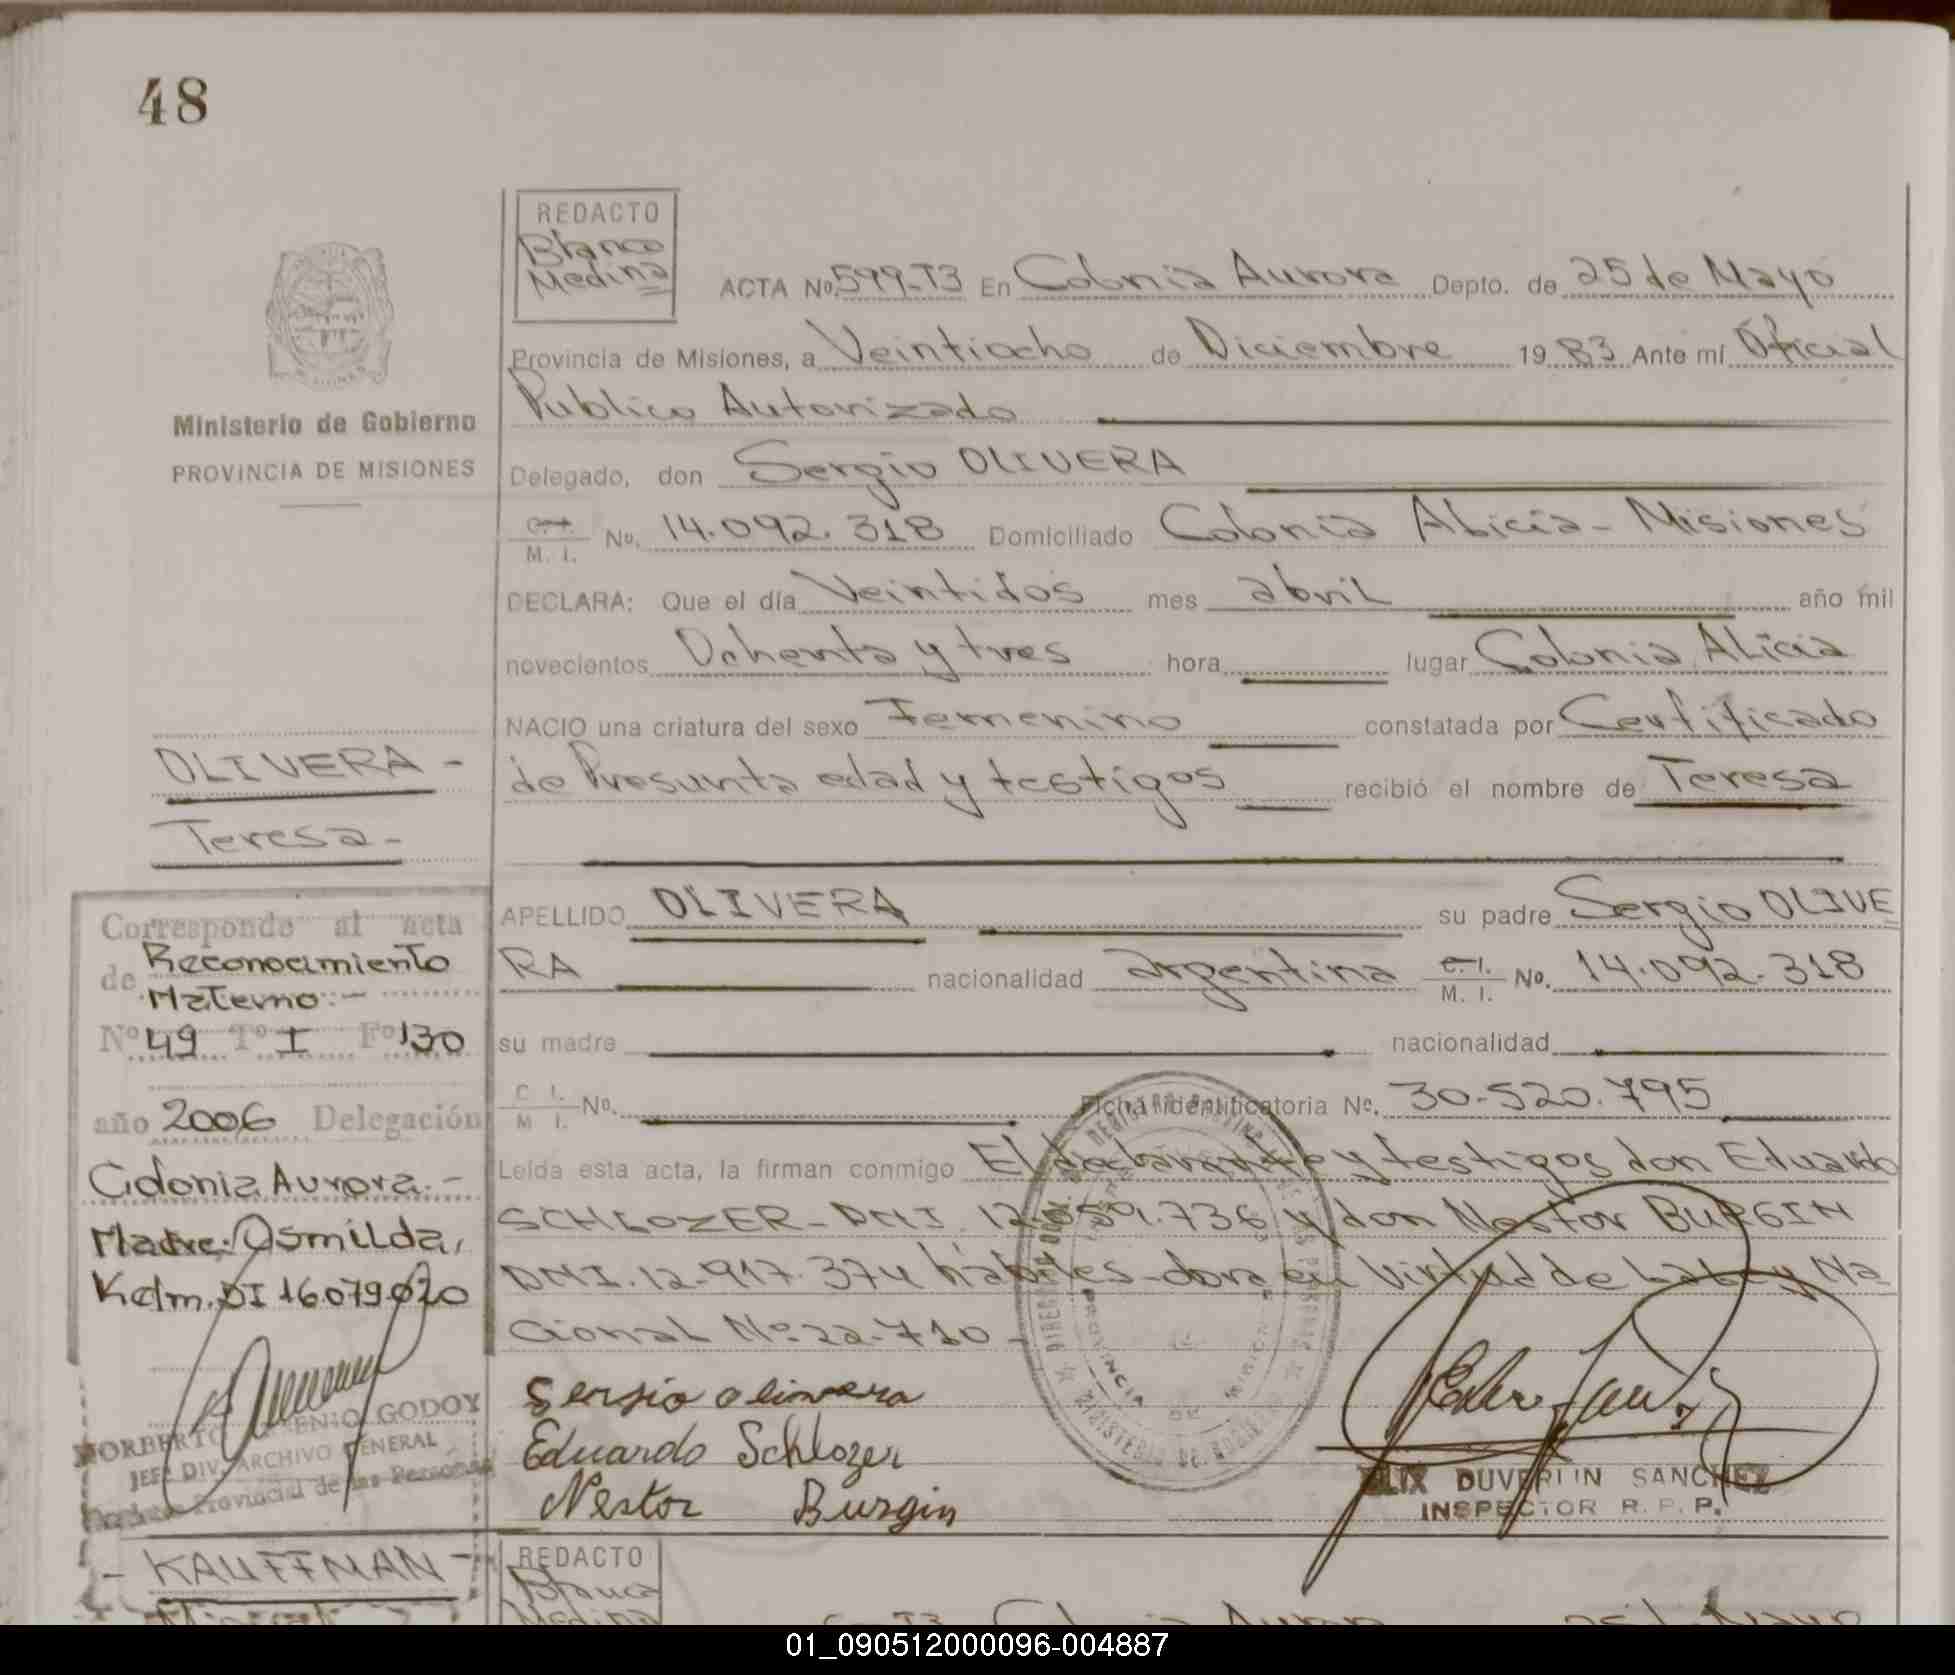 48
REDACTO
Blanca
Medina
ACTA Nº 599-T3 En Colonia Aurora Depto. de 25 de Mayo
Provincia de Misiones, a Veintiocho de Diciembre 19 83 Ante mí Oficial
Publico Autorizado
Ministerio de Gobierno
PROVINCIA DE MISIONES
Delegado, don Sergio OLIVERA
C. I.
M. I. No. 14.092.318 Domiciliado Colonia Alicia - Misiones
DECLARA: Que el día Veintidos mes abril año mil
novecientos Ochenta y tres hora lugar Colonia Alicia
NACIO una criatura del sexo Femenino constatada por Certificado
de Presunta edad y testigos recibió el nombre de Teresa
OLIVERA -
Teresa -
APELLIDO OLIVERA su padre Sergio OLIVE
RA nacionalidad argentina C. I. M. I. No. 14.092.318
su madre nacionalidad
C I. M I. No. Ficha identificatoria No. 30.520.795
Leída esta acta, la firman conmigo El declarante y testigos don Eduardo
SCHLOZER - DNI. y don Nestor BURGIN
DNI. 12.917.374 hábiles - dora en Virtud de La Ley Na
cional Nº 22.710 -
Sergio olivera
Eduardo Schlozer
Nestor Burgin
DUVERLIN SANCHEZ
INSPECTOR R. P. P.
Corresponde al acta
de Reconocimiento
Materno:-
Nº 49 Tº I Fº 130
año 2006 Delegación
Colonia Aurora.-
Madre: Osmilda,
Kelm. DI 16079020
NORBERTO GODOY
JEFE DIV. ARCHIVO GENERAL
Provincial de las Personas
- KAUFFMAN -
REDACTO
Blanca
Medina
01_090512000096-004887